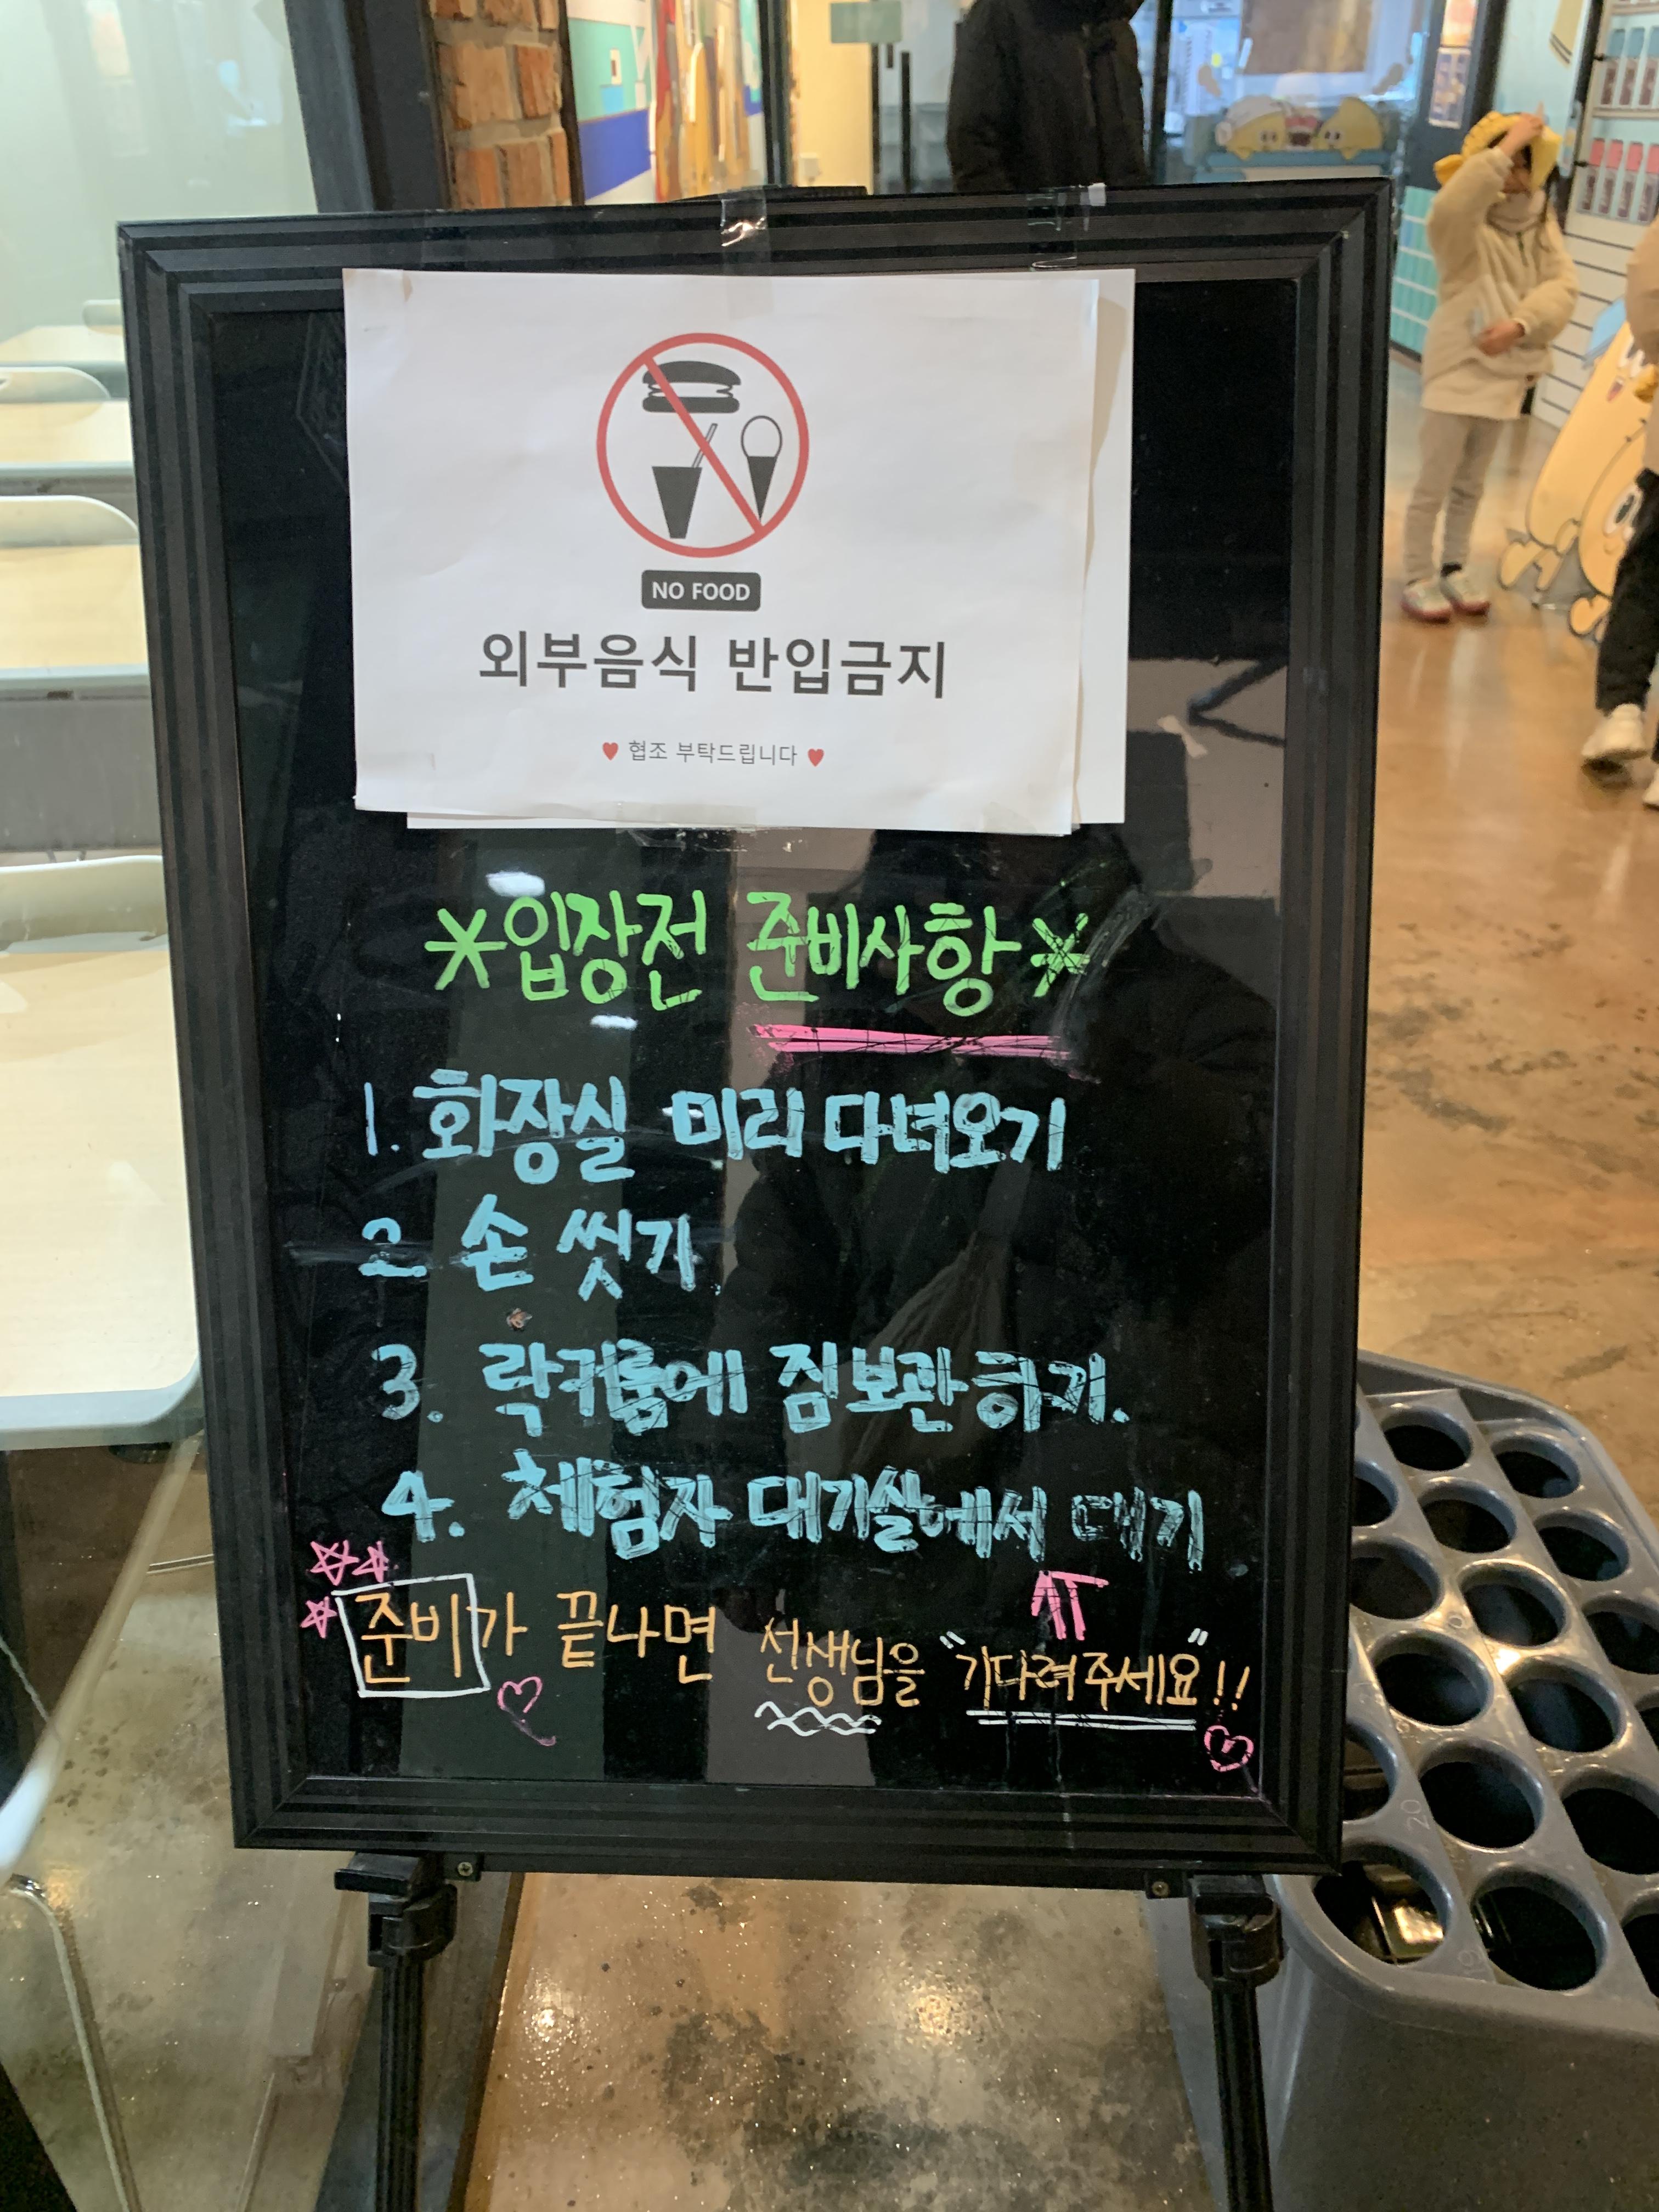 NO FOOD
외부음식 반입금지
♥ 협조 부탁드립니다 ♥
*입장전 준비사항*
1. 화장실 미리 다녀오기
2. 손 씻기
3. 락커룸에 짐보관하기.
4. 체험자 대기실에서 대기
준비가 끝나면 선생님을 "기다려주세요"!!